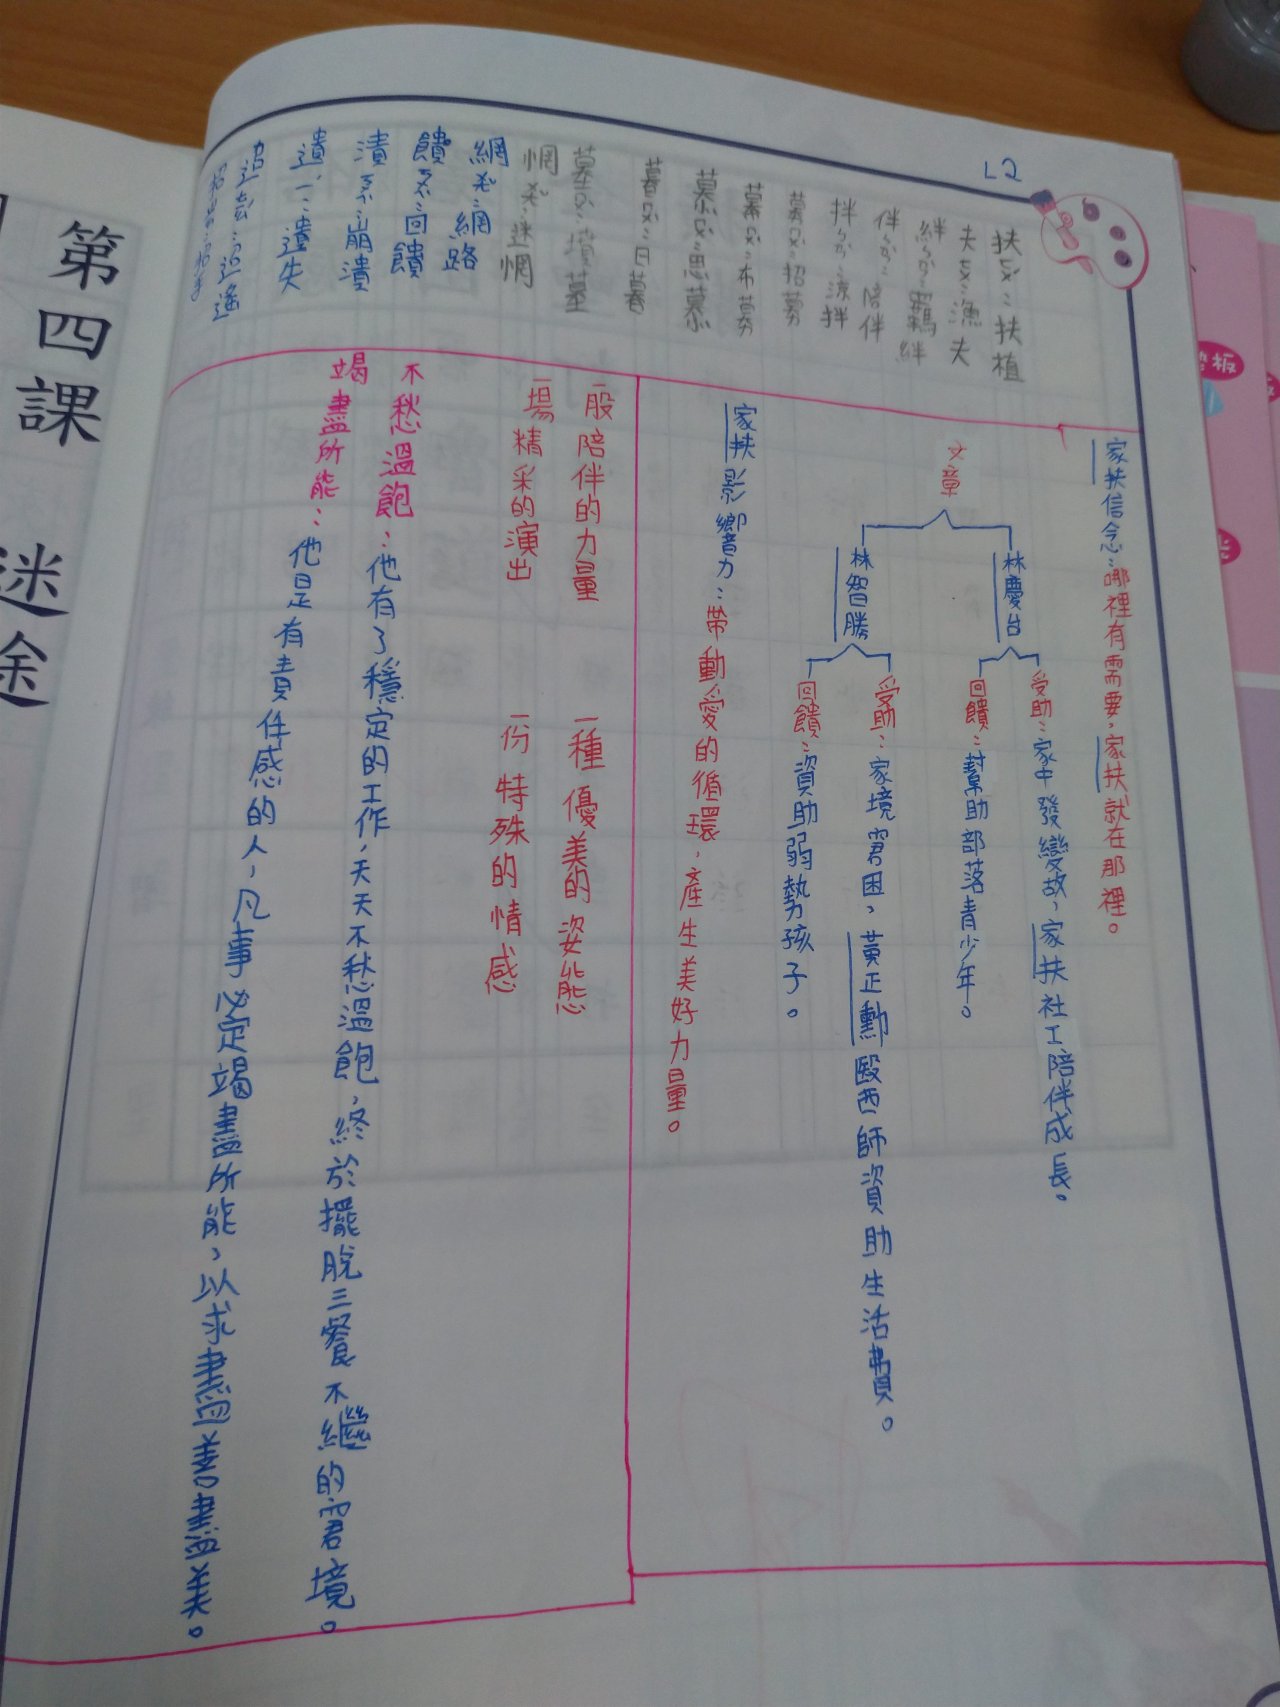 L2
扶ㄈㄨˊ：扶植
夫ㄈㄨ：漁夫
絆ㄅㄢˋ：羈絆
伴ㄅㄢˋ：陪伴
拌ㄅㄢˋ：涼拌
募ㄇㄨˋ：招募
慕ㄇㄨˋ：思慕
暮ㄇㄨˋ：日暮
墓ㄇㄨˋ：墳墓
惘ㄨㄤˇ：迷惘
網ㄨㄤˇ：網路
饋ㄎㄨㄟˋ：回饋
潰ㄎㄨㄟˋ：崩潰
遺ㄧˊ：遺失
家扶信念：哪裡有需要，家扶就在那裡。
文章
林慶台
受助：家中發變故，家扶社工陪伴成長。
回饋：幫助部落青少年。
林智勝
受助：家境窘困，黃正勳醫師資助生活費。
回饋：資助弱勢孩子。
家扶影響力：帶動愛的循環，產生美好力量。
一股陪伴的力量
一種優美的姿態
一場精采的演出
一份特殊的情感
不愁溫飽：他有了穩定的工作，天天不愁溫飽，終於擺脫三餐不繼的窘境。
竭盡所能：他是有責任感的人，凡事必定竭盡所能，以求盡善盡美。
第四課 迷途